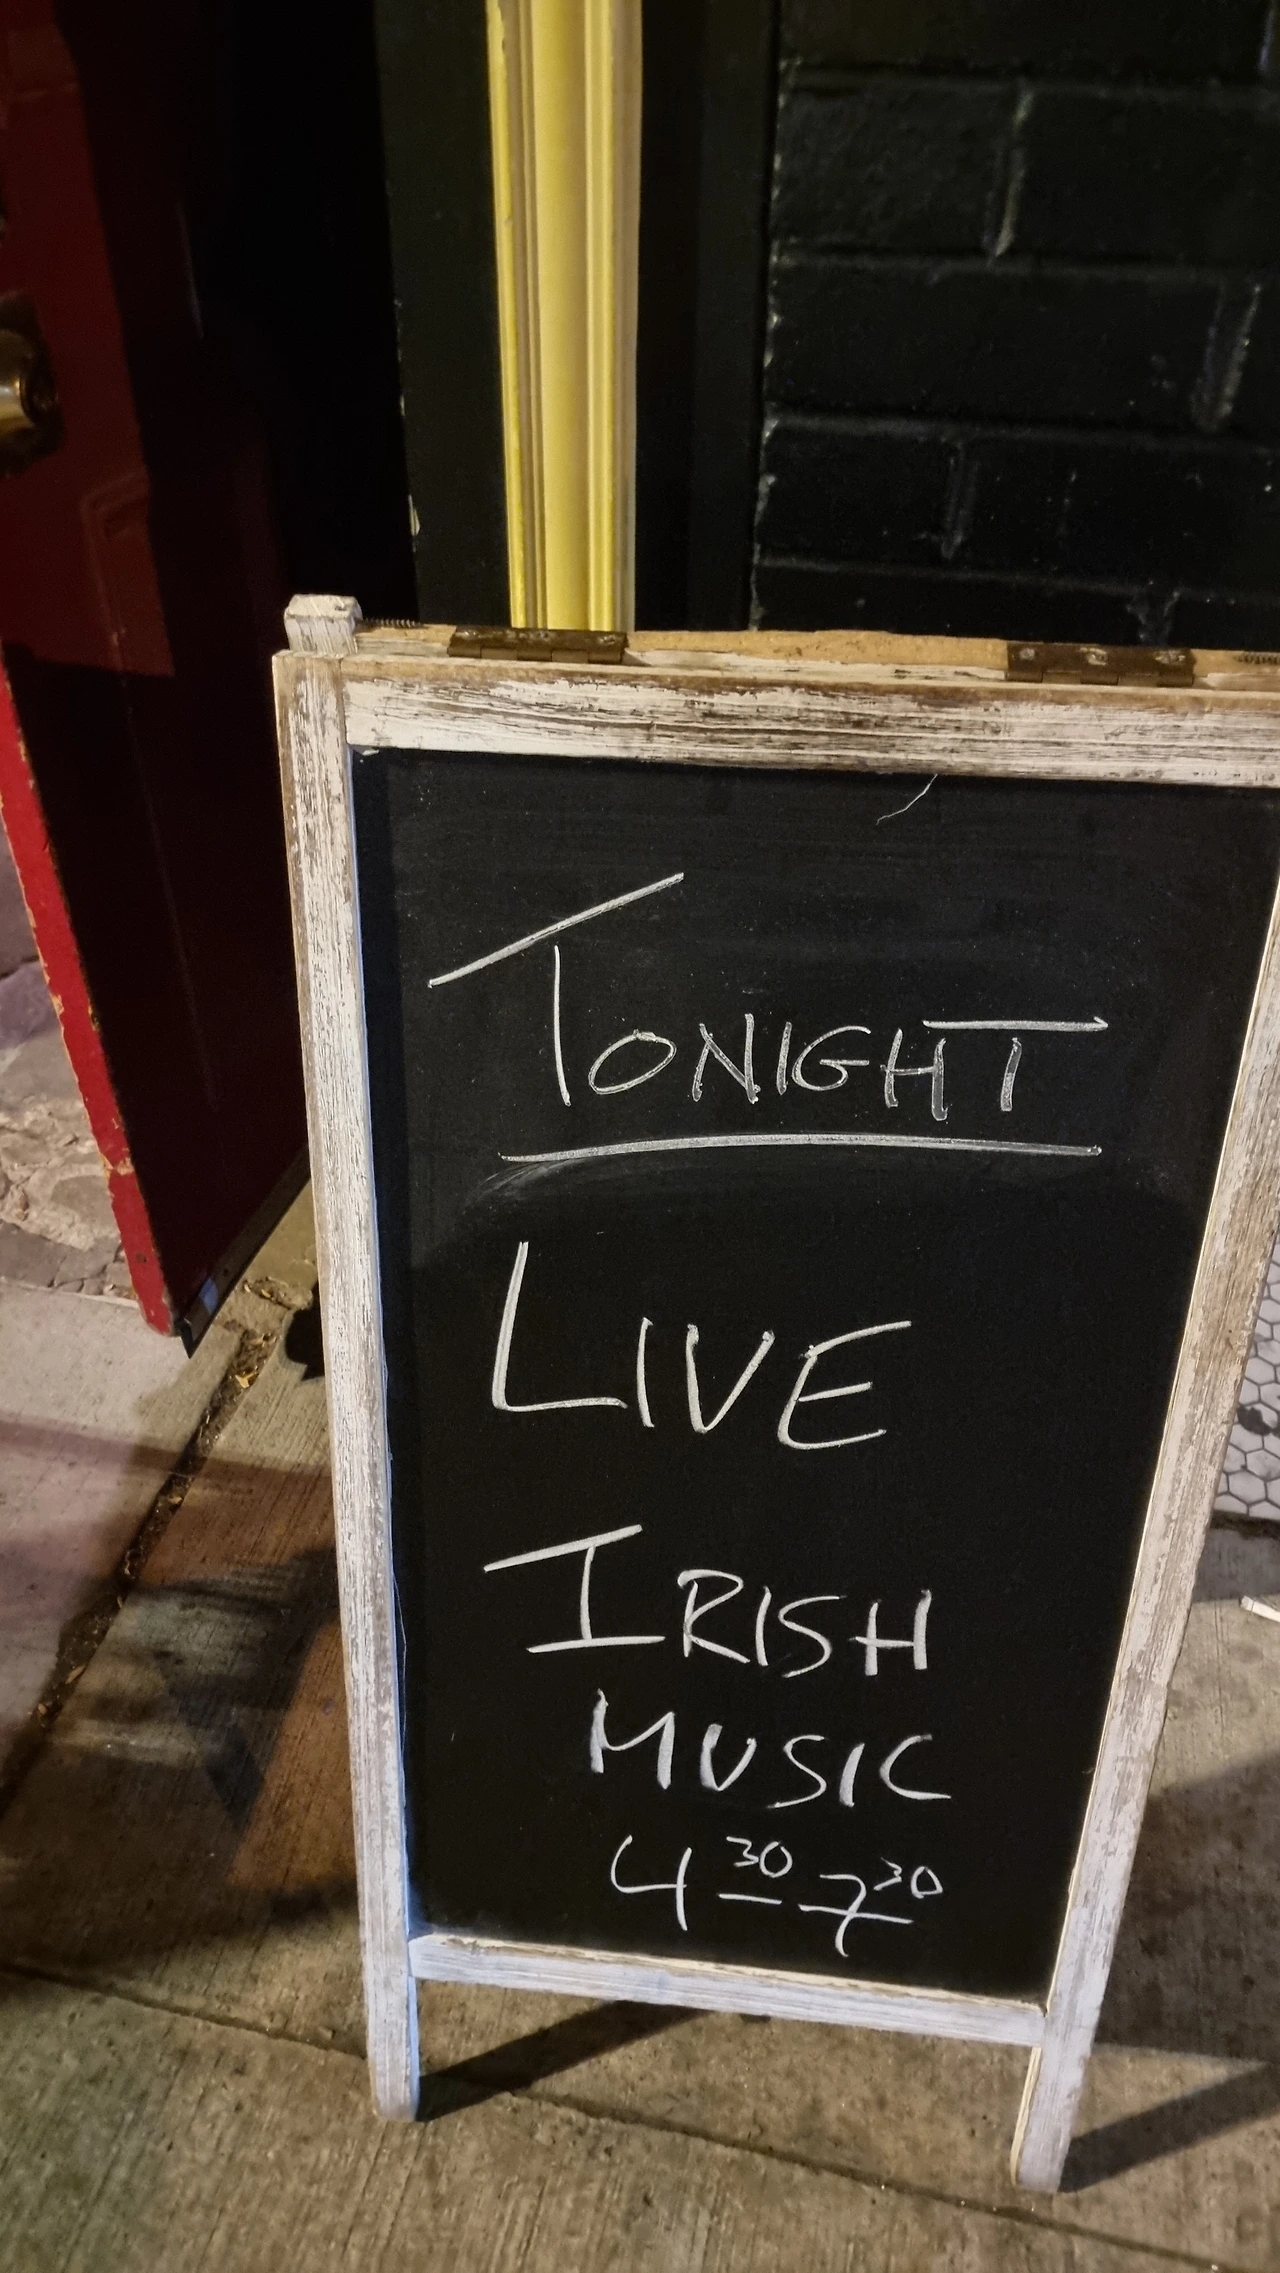 TONIGHT
LIVE
IRISH
MUSIC
4 30 - 7 30